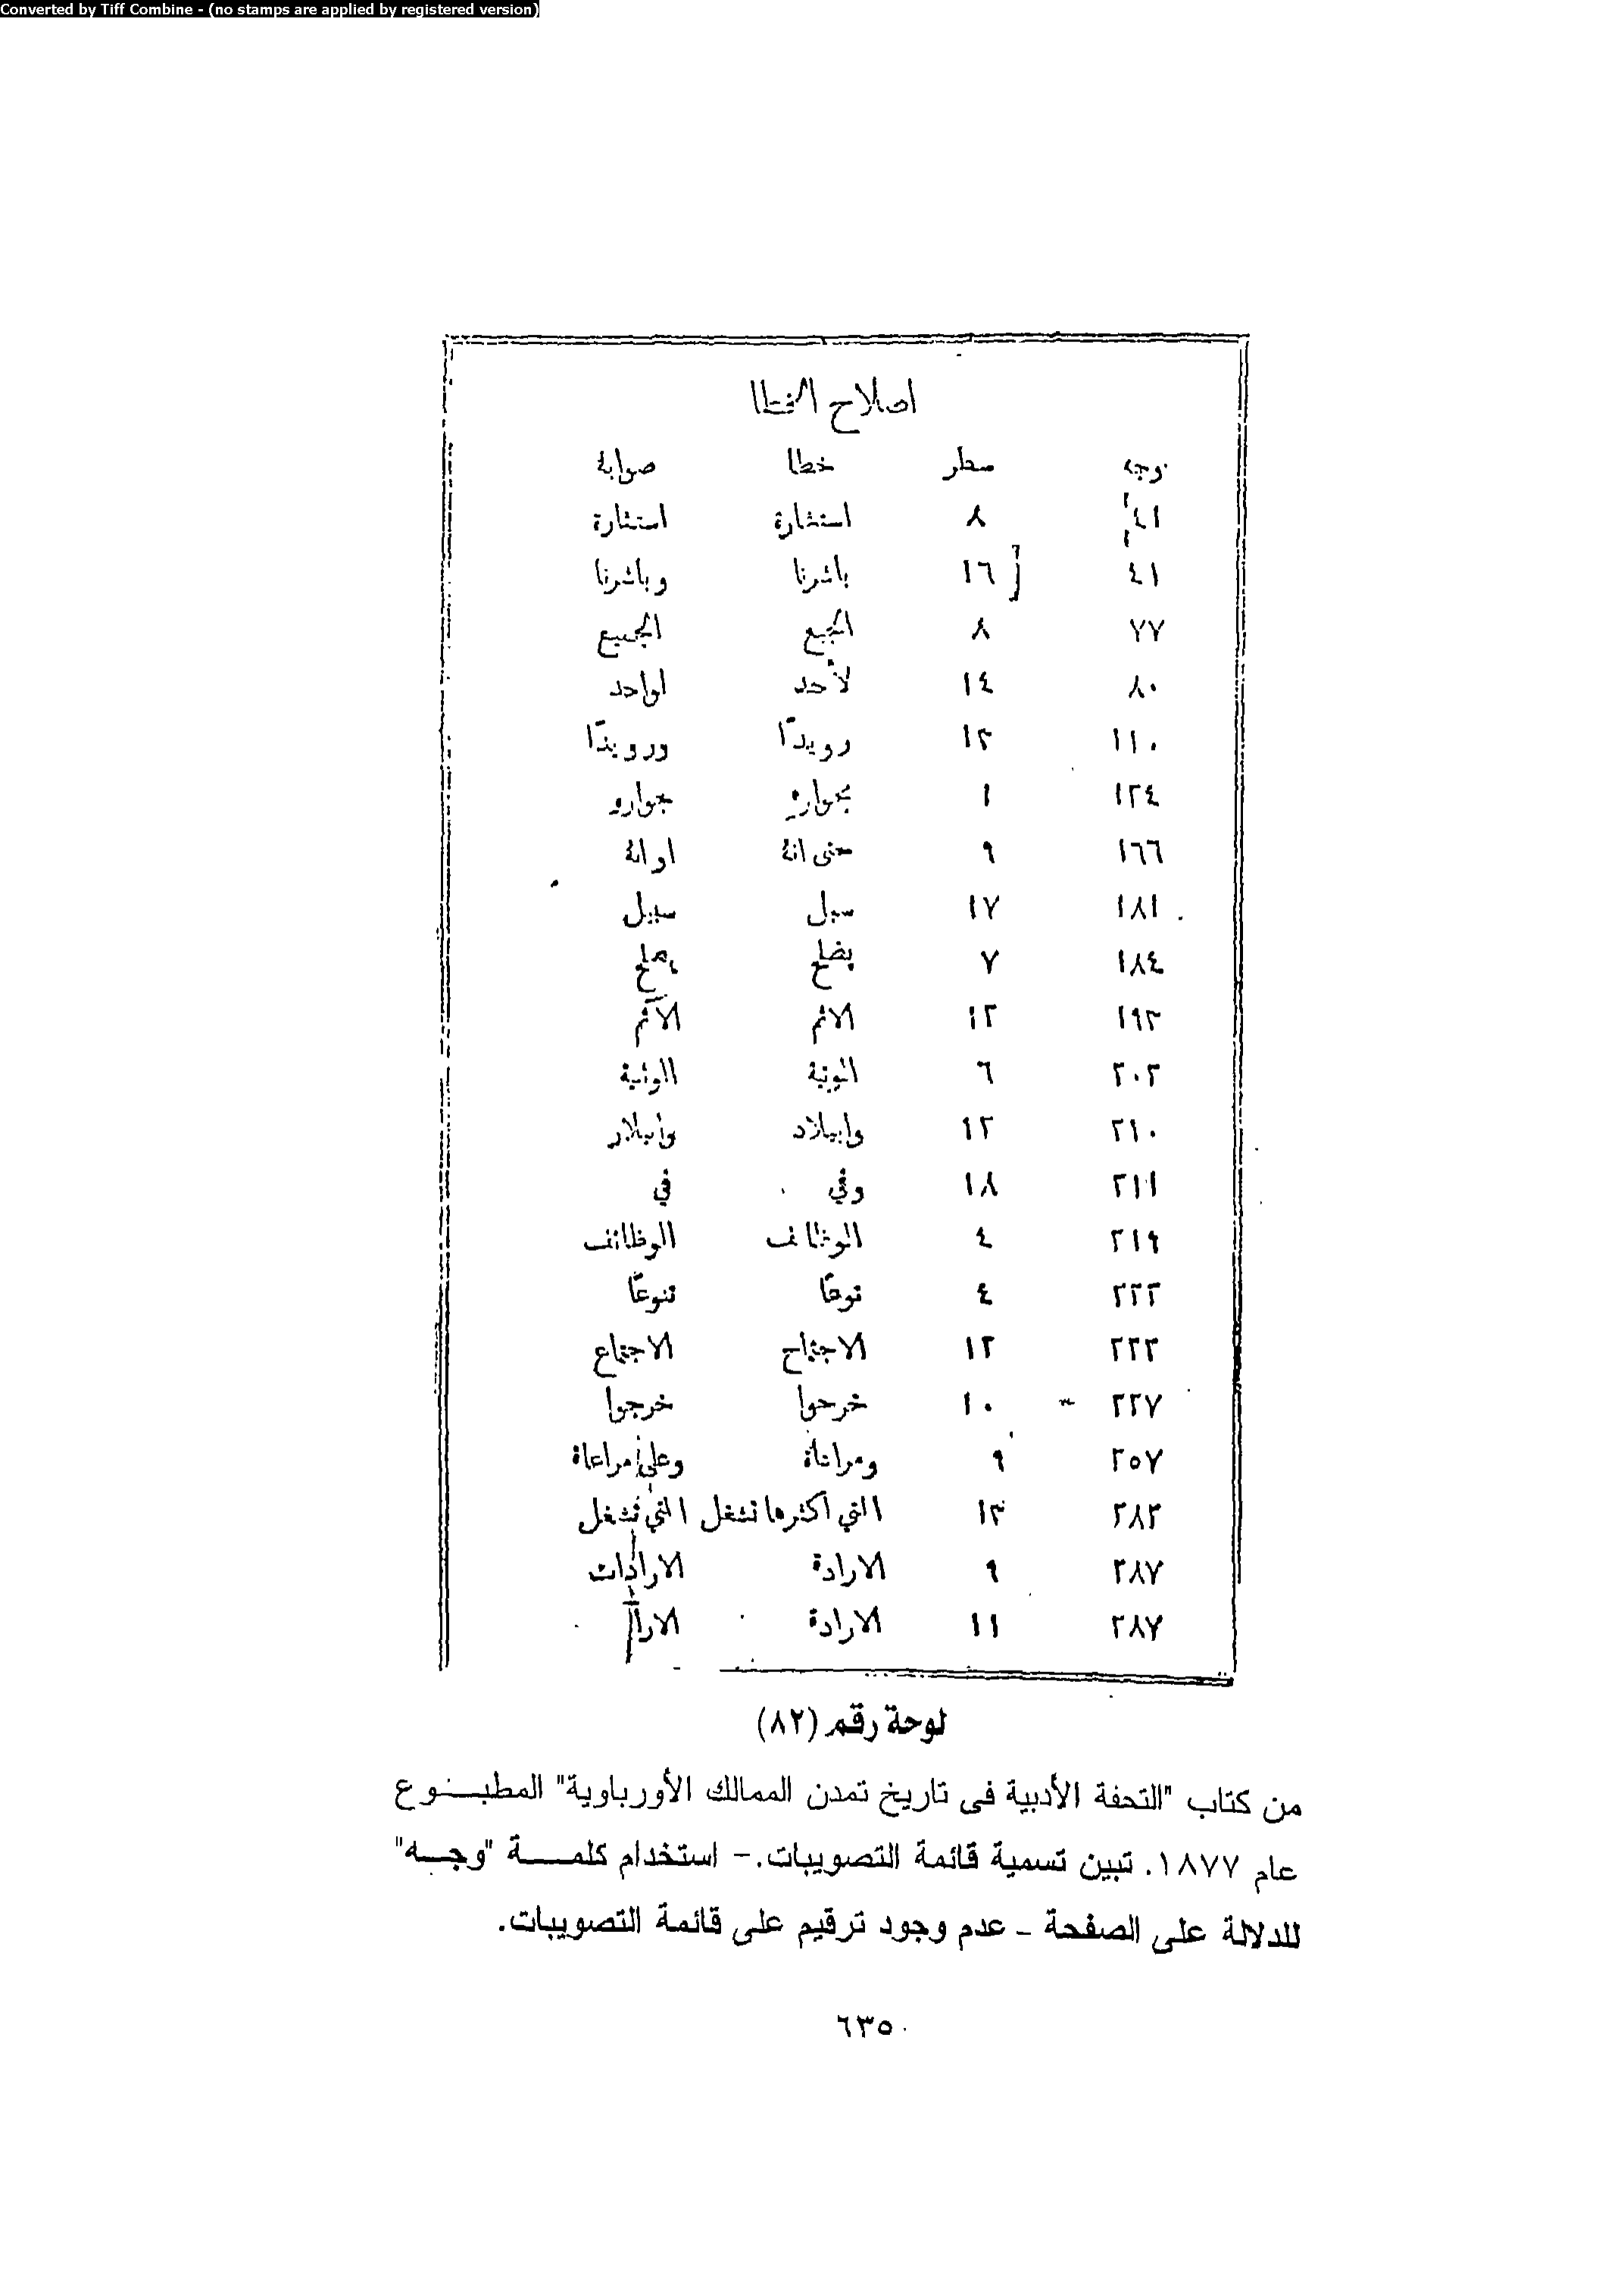 Converted by Tiff Combine - (no stamps are applied by registered version)
اصلاح الخطا
وجه سطر خطا صوابة
٤١ ٨ استشارة استثارة
٤١ ١٦ باشرنا وباشرنا
٧٧ ٨ الجميع
٨٠ ١٤ لأحد لواحد
١١٠ ١٣ رويدًا ورويدًا
١٢٤ ١ بجواره جوارو
١٦٦ ٩ حتى انة او انة
١٨١ ١٧ سبل سبيل
١٨٤ ٧ يصلح
١٩٣ ١٢ الاثم الآثم
٢٠٣ ٦ الوثنية
٢١٠ ١٢ وابيلاد وابيلار
٢١١ ١٨ وفي في
٢١٩ ٤ الوظائف
٢٢٢ ٤ نوعًا تنوعًا
٢٢٣ ١٢ الاجتماع
٢٢٧ ١٠ خرحوا خرجوا
٢٥٧ ٩ وعلى مراعاة
٢٨٣ ١٣ التي اكثرها تشغل التي تشغل
٢٨٧ ٩ الارادة الارادات
٢٨٧ ١١ الارادة
لوحة رقم (٨٢)
من كتاب "التحفة الأدبية فى تاريخ تمدن الممالك الأورباوية" المطبــوع
عام ١٨٧٧. تبين تسمية قائمة التصويبات.- استخدام كلمــة "وجــه"
للدلالة على الصفحة - عدم وجود ترقيم على قائمة التصويبات.
٦٣٥